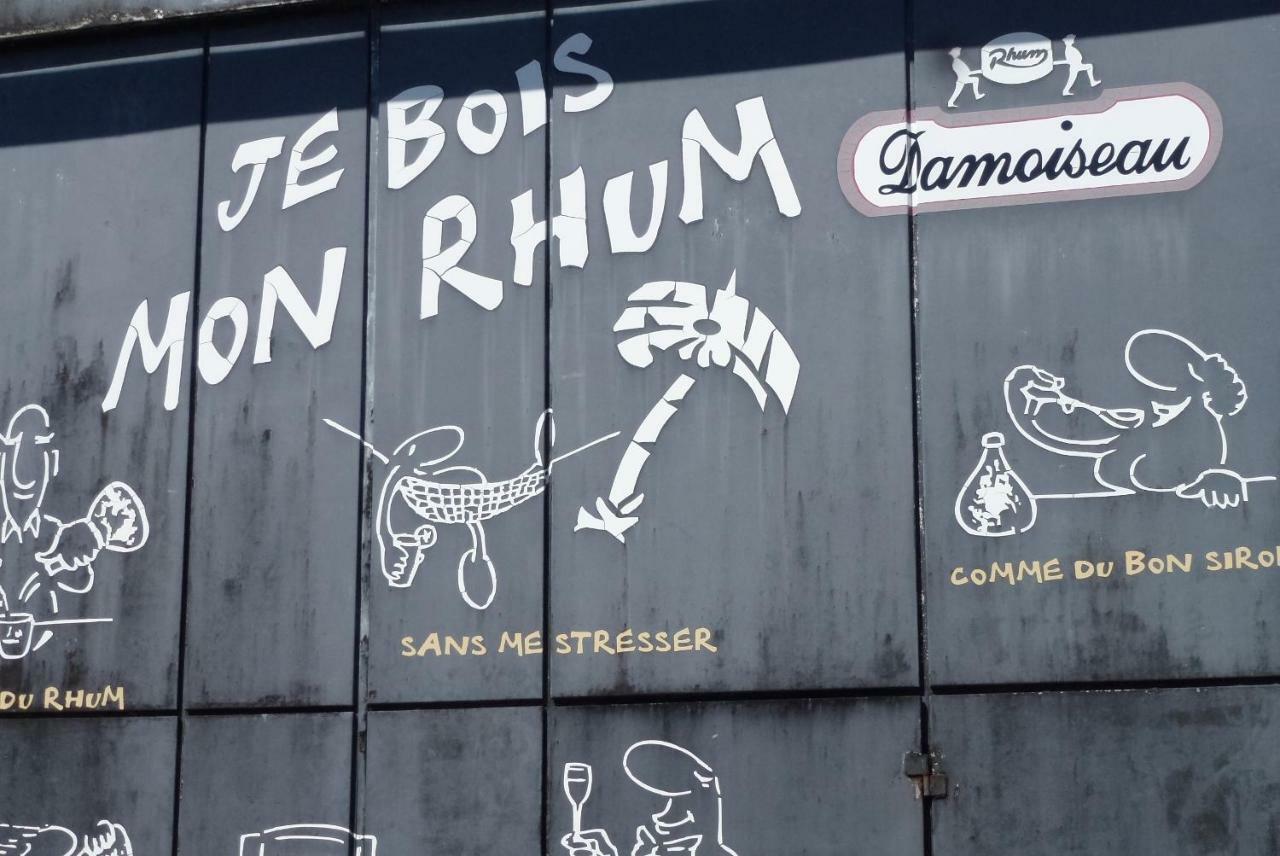 JE BOIS
MON RHUM
Rhum
Damoiseau
COMME DU BON
SANS ME STRESSER
DU RHUM